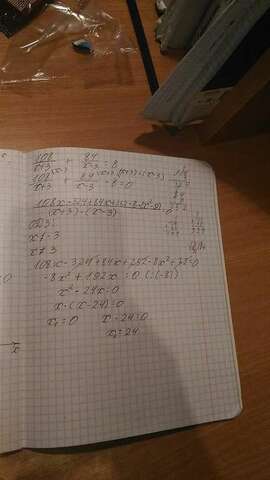 108/x+3 + 84/x-3 = 8
108^(x-3)/x+3 + 84^(x+3)/x-3 - 8 = 0
108x-324+84x+252-8(x²-9)/(x+3)·(x-3) = 0
ОДЗ:
x≠-3
x≠3
108x-324+84x+252-8x²+72=0
-8x²+192x=0 (:(-8))
x²-24x=0
x·(x-24)=0
x₁=0 x-24=0
x₂=24
x